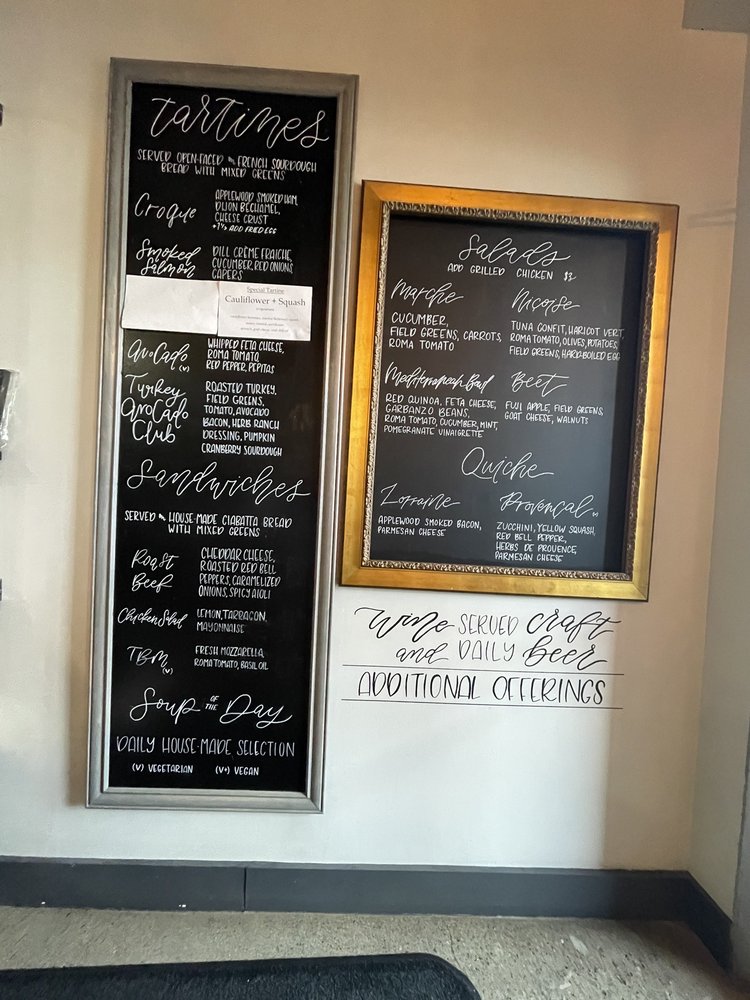 tartines
SERVED OPEN-FACED on FRENCH SOURDOUGH
BREAD WITH MIXED GREENS
Croque
APPLEWOOD SMOKED HAM,
DIJON BECHAMEL,
CHEESE CRUST
ADD FRIED EGG
Smoked
Salmon
DILL CRÈME FRAICHE,
CUCUMBER, RED ONIONS
CAPERS
Special Tartine
Cauliflower + Squash
Avocado (v)
WHIPPED FETA CHEESE,
ROMA TOMATO,
RED PEPPER, PEPITAS
Turkey
Avocado
Club
ROASTED TURKEY,
FIELD GREENS,
TOMATO, AVOCADO
BACON, HERB RANCH
DRESSING, PUMPKIN
CRANBERRY SOURDOUGH
Sandwiches
SERVED on HOUSE-MADE CIABATTA BREAD
WITH MIXED GREENS
Roast
Beef
CHEDDAR CHEESE,
ROASTED RED BELL
PEPPERS, CARAMELIZED
ONIONS, SPICY AIOLI
Chicken Salad
LEMON, TARRAGON,
MAYONNAISE
TBM (v)
FRESH MOZZARELLA
ROMA TOMATO, BASIL OIL
Soup OF THE Day
DAILY HOUSE-MADE SELECTION
(V) VEGETARIAN (V+) VEGAN
Salads
ADD GRILLED CHICKEN $3
Marche
CUCUMBER,
FIELD GREENS, CARROTS,
ROMA TOMATO
Nicoise
TUNA CONFIT, HARICOT VERT,
ROMA TOMATO, OLIVES, POTATOES,
FIELD GREENS, HARD-BOILED EGG
Mediterranean Bowl
RED QUINOA, FETA CHEESE,
GARBANZO BEANS,
ROMA TOMATO, CUCUMBER, MINT,
POMEGRANATE VINAIGRETTE
Beet
FUJI APPLE, FIELD GREENS,
GOAT CHEESE, WALNUTS
Quiche
Lorraine
APPLEWOOD SMOKED BACON,
PARMESAN CHEESE
Provençal
ZUCCHINI, YELLOW SQUASH,
RED BELL PEPPER,
HERBS DE PROVENCE,
PARMESAN CHEESE
wine SERVED craft
and DAILY beer
ADDITIONAL OFFERINGS